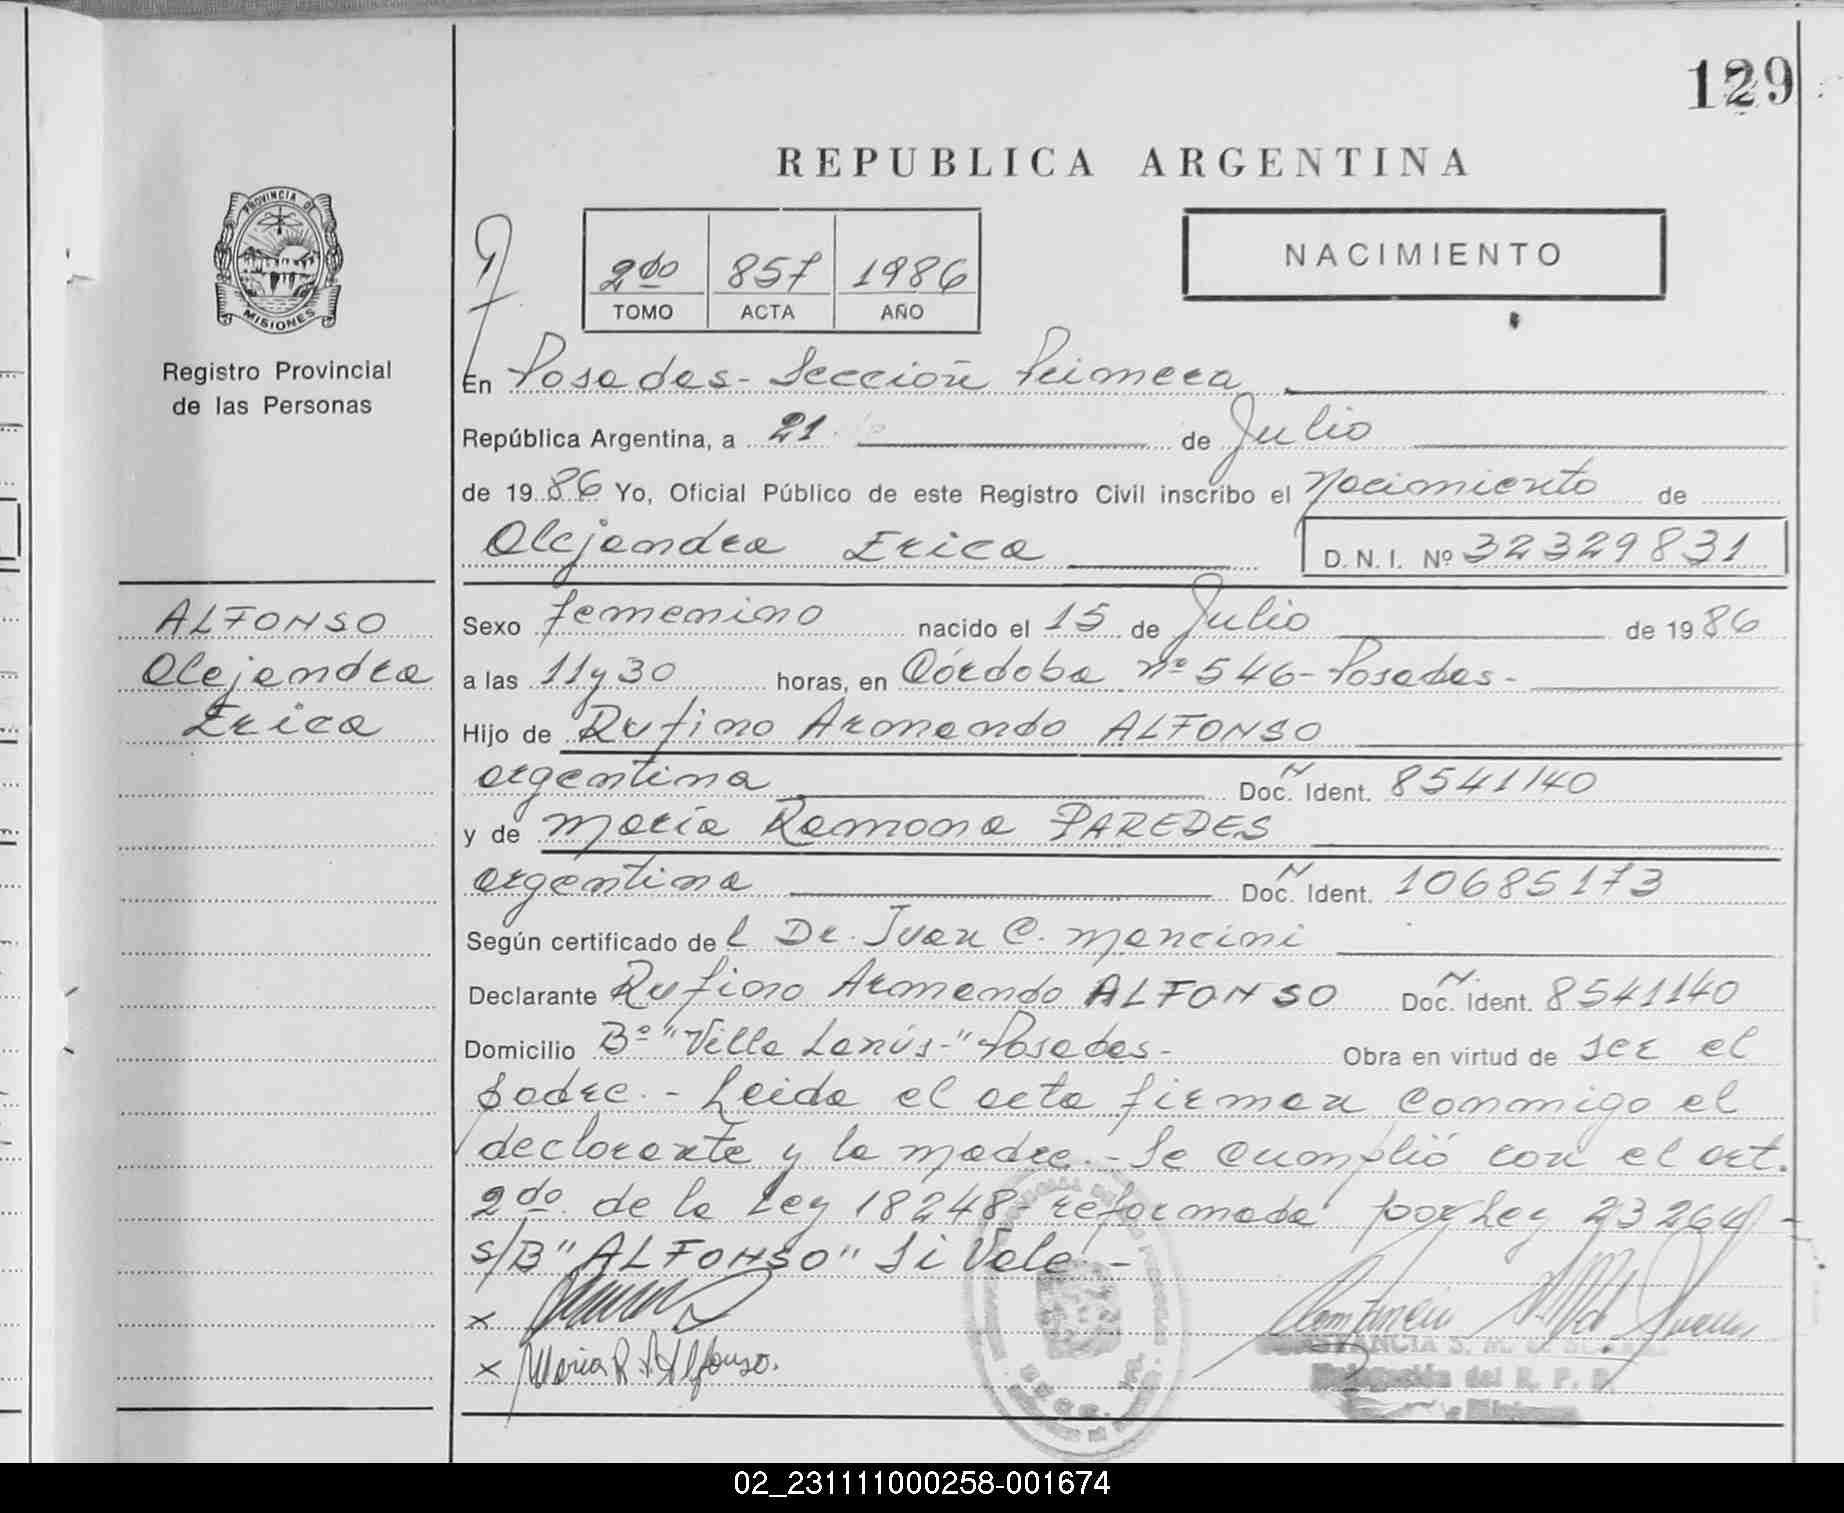 129
REPUBLICA ARGENTINA
PROVINCIA DE
MISIONES
Registro Provincial
de las Personas
2do 857 1986
TOMO ACTA AÑO
NACIMIENTO
En Posadas - Sección Primera
República Argentina, a 21 de Julio
de 1986 Yo, Oficial Público de este Registro Civil inscribo el Nacimiento de
Alejandra Erica D. N. I. Nº 32329831
ALFONSO
Alejandra
Erica
Sexo femenino nacido el 15 de Julio de 1986
a las 11 y 30 horas, en Córdoba nº 546 - Posadas -
Hijo de Rufino Armando ALFONSO
argentina Doc. N Ident. 8541140
y de María Ramona PAREDES
argentina Doc. N Ident. 10685173
Según certificado del Dr. Juan C. Mancini
Declarante Rufino Armando ALFONSO Doc. N. Ident. 8541140
Domicilio Bº "Villa Lanús -" Posadas - Obra en virtud de ser el
padre. - Leida el acta firman conmigo el
declarante y la madre. - Se cumplió con el art.
2do. de la Ley 18248 - reformada por Ley 23264 -
S/B "ALFONSO" Si Vale -
x
x Maria R. P. d Alfonso.
Delegación del R. P. P.
02_231111000258-001674